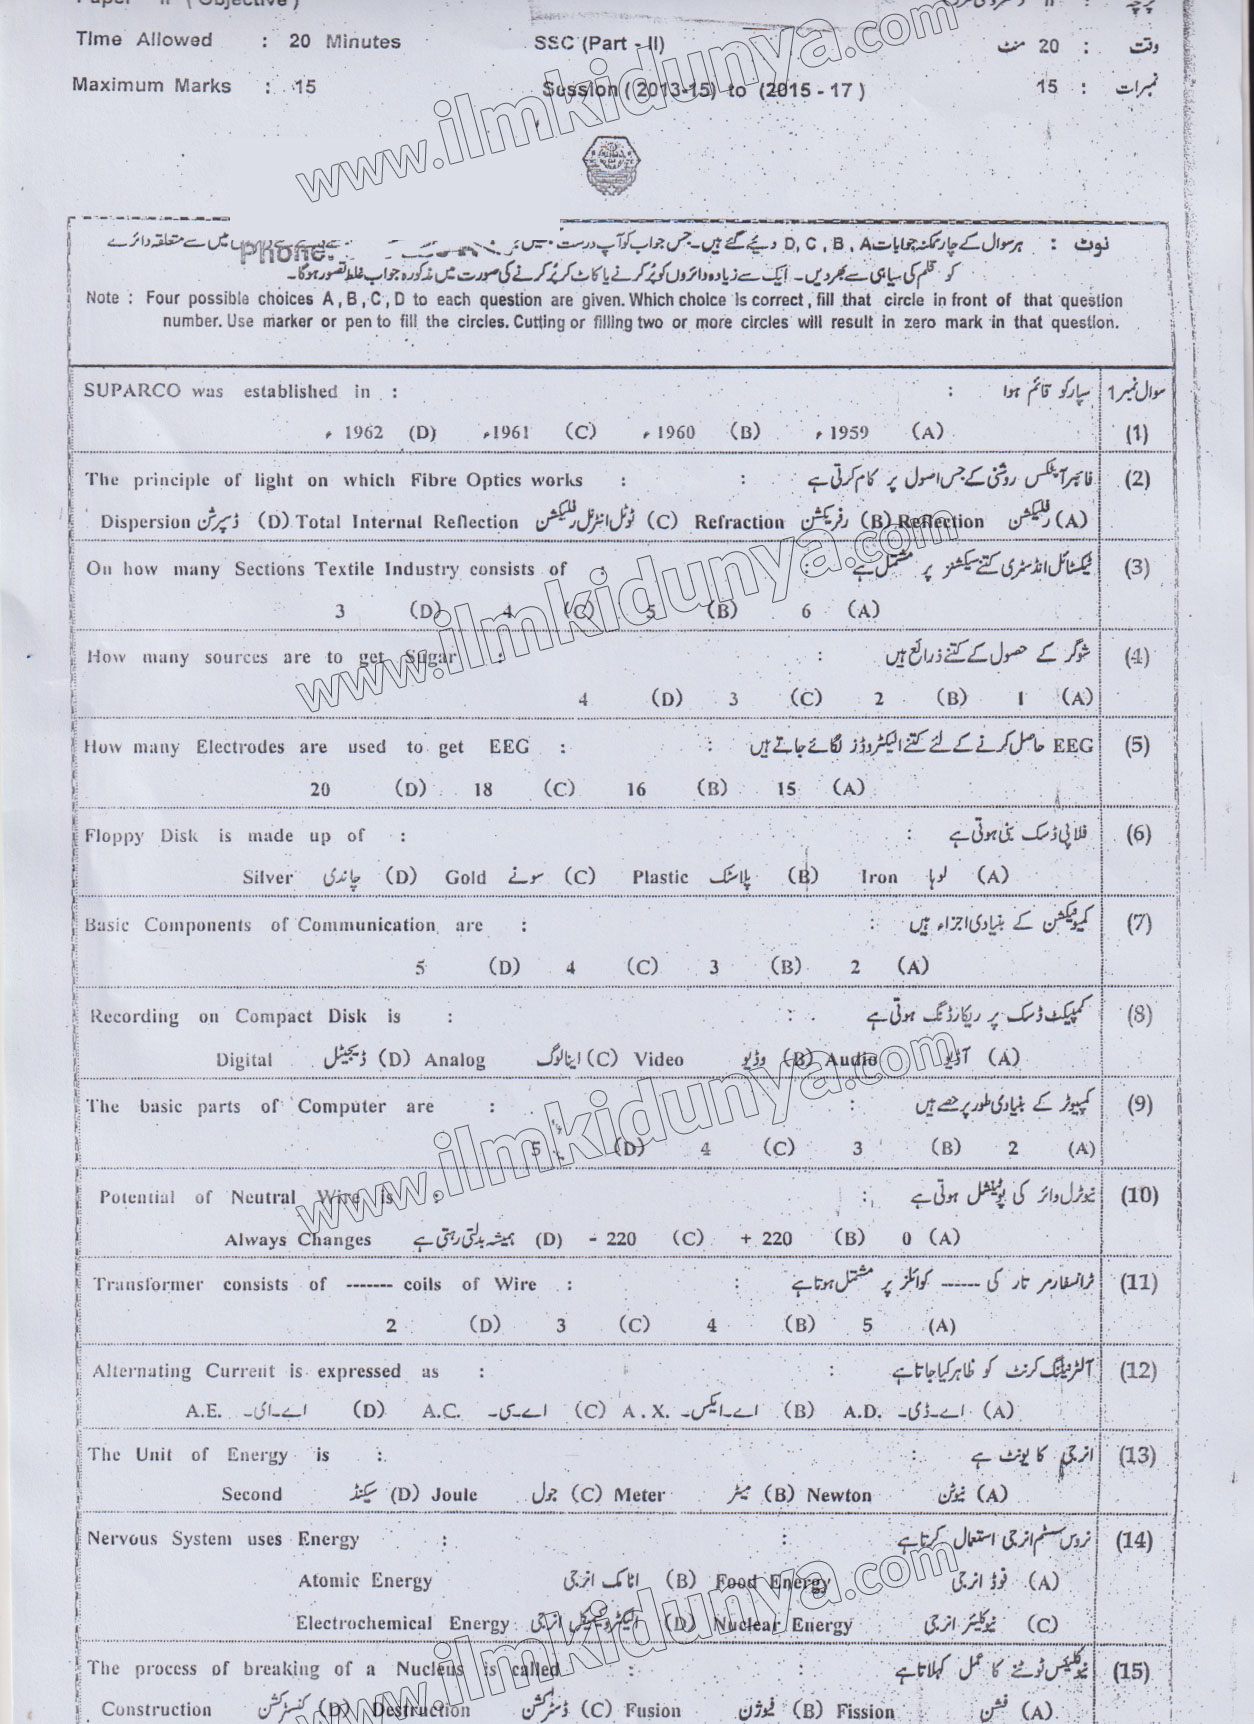 Paper II ( Objective )
Time Allowed : 20 Minutes SSC (Part - II) وقت : 20 منٹ
Maximum Marks : 15 Sussion ( 2013-15) to (2015 - 17 ) نمبرات : 15
نوٹ : ہر سوال کے چار ممکنہ جوابات D, C, B, A دیئے گئے ہیں۔ جس جواب کو آپ درست میں سے متعلقہ دائرے
Phone:
کو قلم کی سیاہی سے بھر دیں۔ ایک سے زیادہ دائروں کو پُر کرنے یا کاٹ کر پُر کرنے کی صورت میں مذکورہ جواب غلط تصور ہوگا۔
Note : Four possible choices A , B , C , D to each question are given. Which choice is correct , fill that circle in front of that question
number. Use marker or pen to fill the circles. Cutting or filling two or more circles will result in zero mark in that question.
SUPARCO was established in : : سپارکو قائم ہوا سوال نمبر 1
1962ء (D) 1961ء (C) 1960ء (B) 1959ء (A) (1)
The principle of light on which Fibre Optics works : : فائبر آپٹکس روشنی کے جس اصول پر کام کرتی ہے (2)
Dispersion ڈسپرشن (D) Total Internal Reflection ٹوٹل انٹرنل رفلیکشن (C) Refraction رفریکشن (B) Reflection رفلیکشن (A)
On how many Sections Textile Industry consists of : : ٹیکسٹائل انڈسٹری کتنے سیکشنز پر مشتمل ہے (3)
3 (D) 4 (C) 5 (B) 6 (A)
How many sources are to get Sugar : : شوگر کے حصول کے کتنے ذرائع ہیں (4)
4 (D) 3 (C) 2 (B) 1 (A)
How many Electrodes are used to get EEG : : EEG حاصل کرنے کے لئے کتنے الیکٹروڈز لگائے جاتے ہیں (5)
20 (D) 18 (C) 16 (B) 15 (A)
Floppy Disk is made up of : : فلاپی ڈسک بنی ہوتی ہے (6)
Silver چاندی (D) Gold سونے (C) Plastic پلاسٹک (B) Iron لوہا (A)
Basic Components of Communication are : : کمیونیکیشن کے بنیادی اجزاء ہیں (7)
5 (D) 4 (C) 3 (B) 2 (A)
Recording on Compact Disk is : : کمپیکٹ ڈسک پر ریکارڈنگ ہوتی ہے (8)
Digital ڈیجیٹل (D) Analog اینالوگ (C) Video وڈیو (B) Audio آڈیو (A)
The basic parts of Computer are : : کمپیوٹر کے بنیادی طور پر حصے ہیں (9)
5 (D) 4 (C) 3 (B) 2 (A)
Potential of Neutral Wire is : : نیوٹرل وائر کی پوٹینشل ہوتی ہے (10)
Always Changes ہمیشہ بدلتی رہتی ہے (D) - 220 (C) + 220 (B) 0 (A)
Transformer consists of ------- coils of Wire : : ٹرانسفارمر تار کی ------ کوائلز پر مشتمل ہوتا ہے (11)
2 (D) 3 (C) 4 (B) 5 (A)
Alternating Current is expressed as : : آلٹرنیٹنگ کرنٹ کو ظاہر کیا جاتا ہے (12)
A.E. اے۔ای۔ (D) A.C. اے۔سی۔ (C) A.X. اے۔ایکس۔ (B) A.D. اے۔ڈی۔ (A)
The Unit of Energy is : : انرجی کا یونٹ ہے (13)
Second سیکنڈ (D) Joule جول (C) Meter میٹر (B) Newton نیوٹن (A)
Nervous System uses Energy : : نروس سسٹم انرجی استعمال کرتا ہے (14)
Atomic Energy اٹامک انرجی (B) Food Energy فوڈ انرجی (A)
Electrochemical Energy الیکٹروکیمیکل انرجی (D) Nuclear Energy نیوکلیئر انرجی (C)
The process of breaking of a Nucleus is called : : نیوکلیئس ٹوٹنے کا عمل کہلاتا ہے (15)
Construction کنسٹرکشن (D) Destruction ڈسٹرکشن (C) Fusion فیوژن (B) Fission فشن (A)
www.ilmkidunya.com
www.ilmkidunya.com
www.ilmkidunya.com
www.ilmkidunya.com